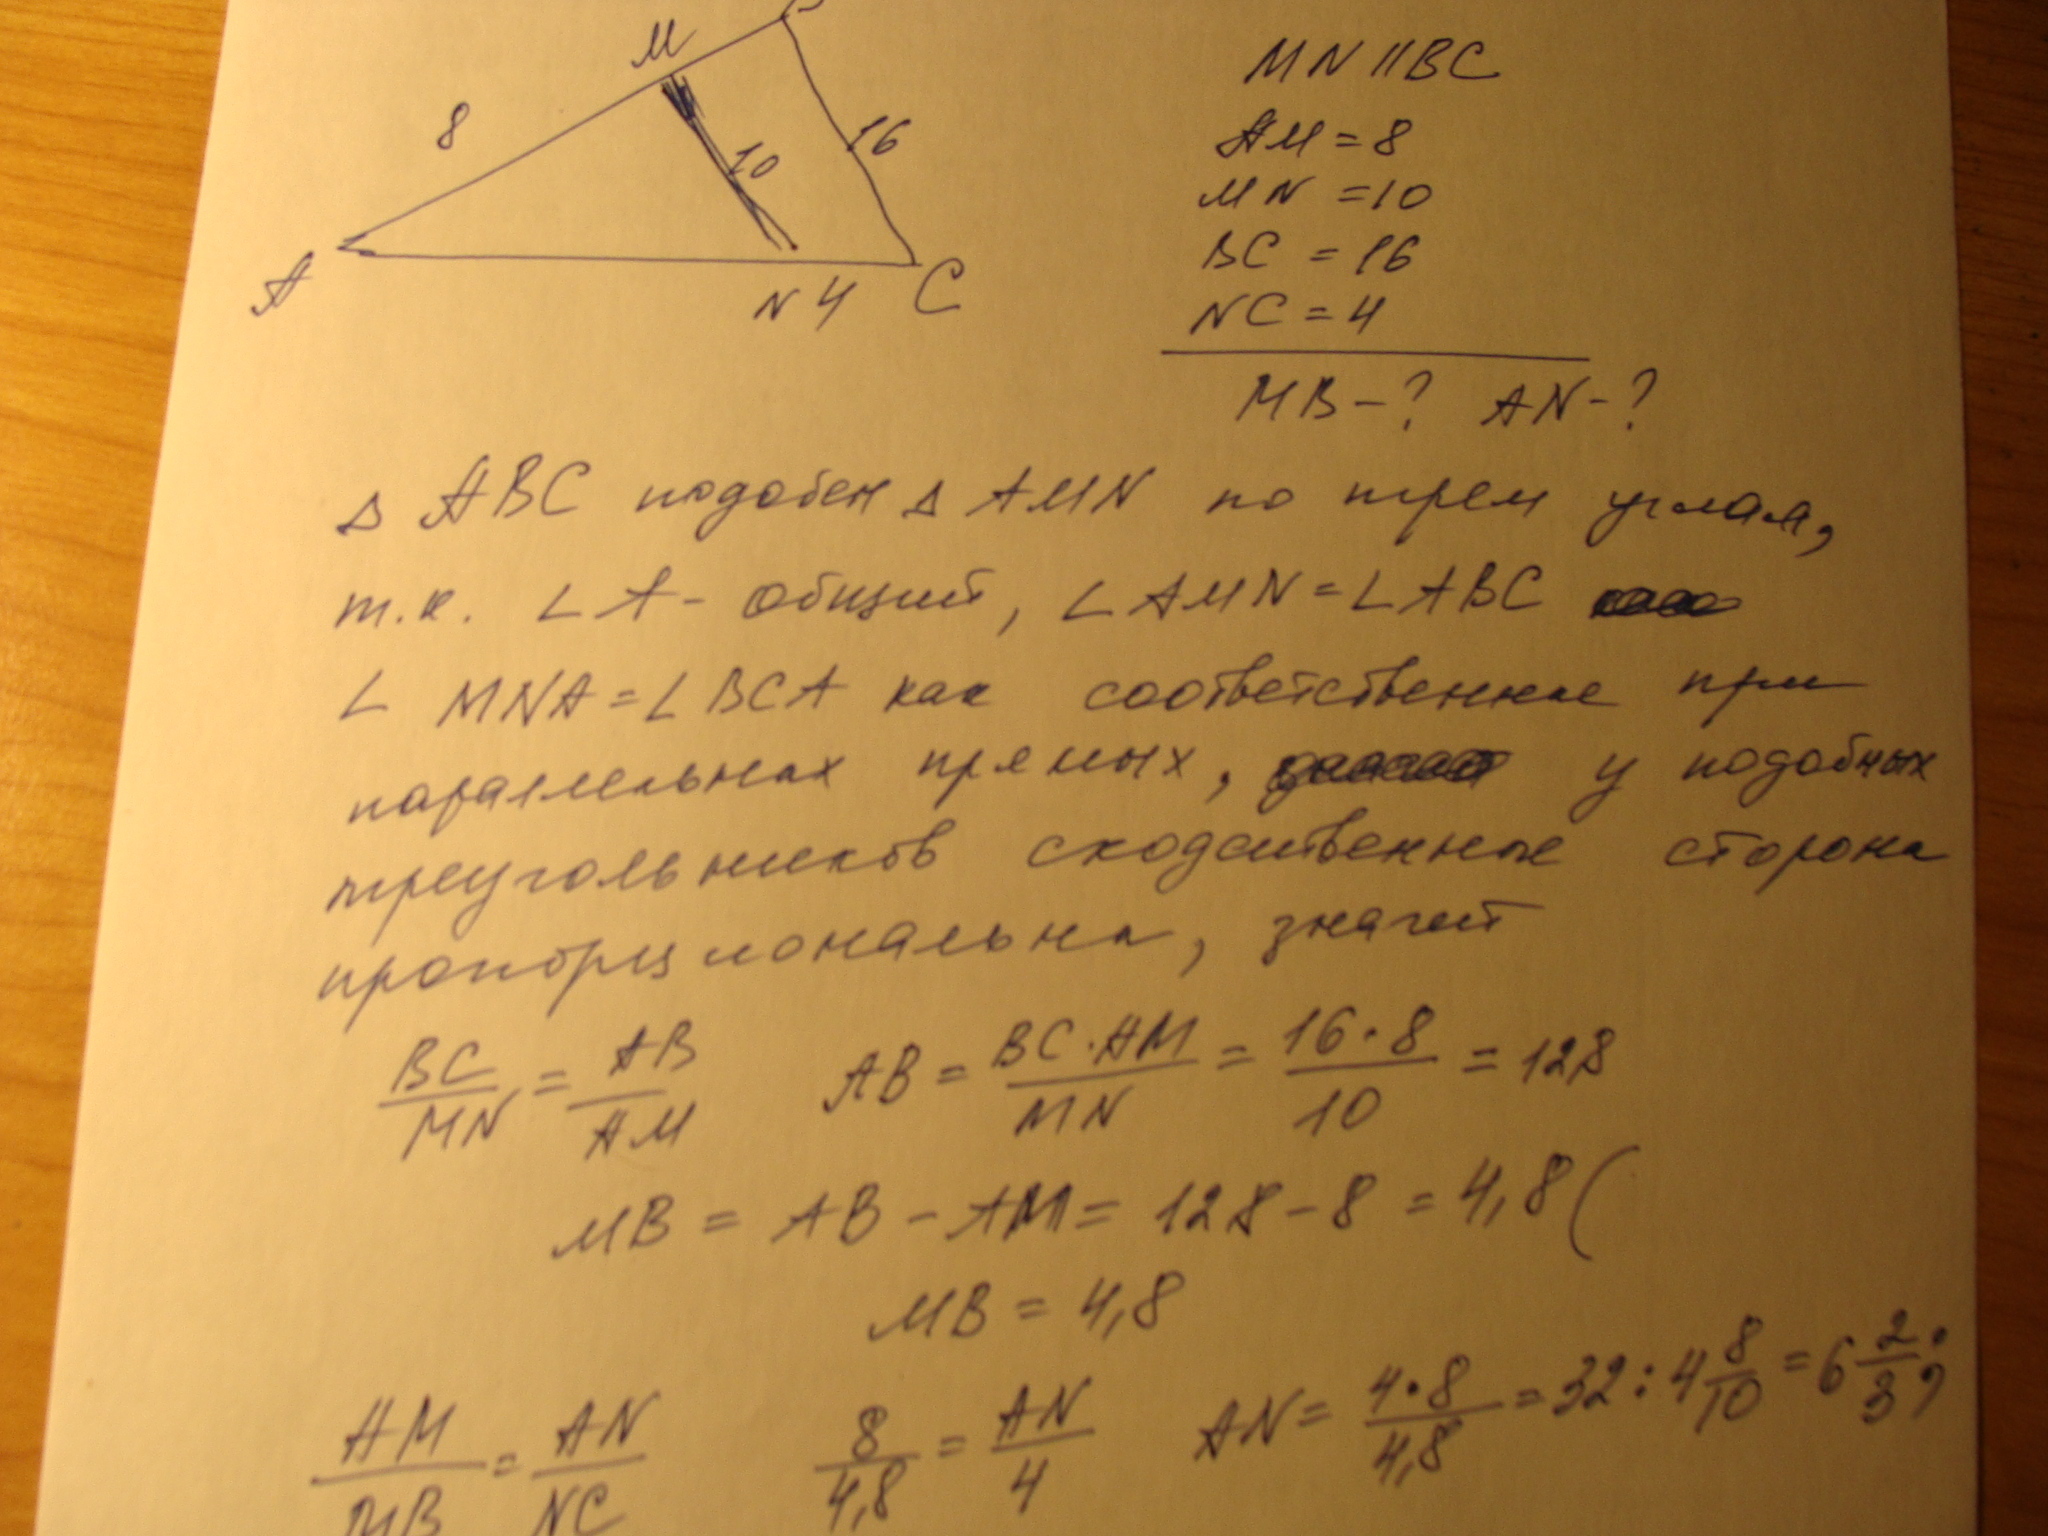 M
8
10
16
A
N 4 C
MN || BC
AM = 8
MN = 10
BC = 16
NC = 4
MB - ? AN - ?
Δ ABC подобен Δ AMN по трем углам,
т.к. ∠ A - общий, ∠ AMN = ∠ ABC
∠ MNA = ∠ BCA как соответственные при
параллельных прямых, у подобных
треугольников сходственные стороны
пропорциональны, значит
BC/MN = AB/AM AB = BC·AM/MN = 16·8/10 = 128
MB = AB - AM = 128 - 8 = 4,8 (
MB = 4,8
AM/MB = AN/NC 8/4,8 = AN/4 AN = 4·8/4,8 = 32 : 4 8/10 = 6 2/3;